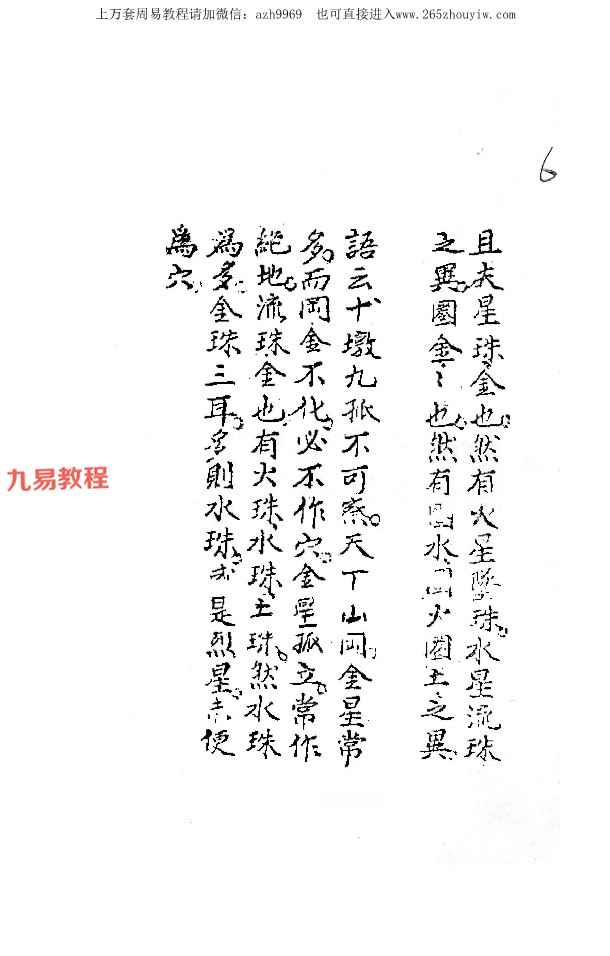 上万套周易教程请加微信：azh9969　也可直接进入www.265zhouyiw.com
6
且夫星珠金也。然有火星墜珠。水星流珠
之異。圓金金也。然有水火圓土之異。
語云十墩九孤不可察。天下山岡。金星常
多。而岡金不化。必不作穴。金星孤立。常作
絕地。流珠金也有火珠水珠土珠。然水珠
為多。金珠三耳。多則水珠。亦是烈星。未便
為穴。
九易教程